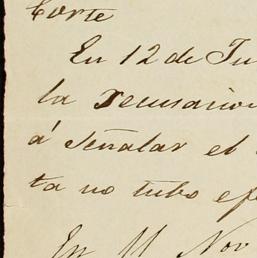 Corte
En 12 de Ju
la recusacion
á señalar el
ta no tubo efe
En 11 Nov